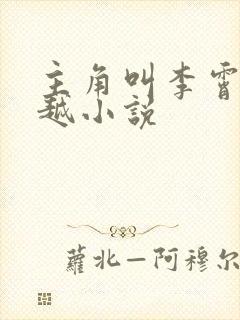 主角叫李霄
越小说
蘿北—阿穆尔